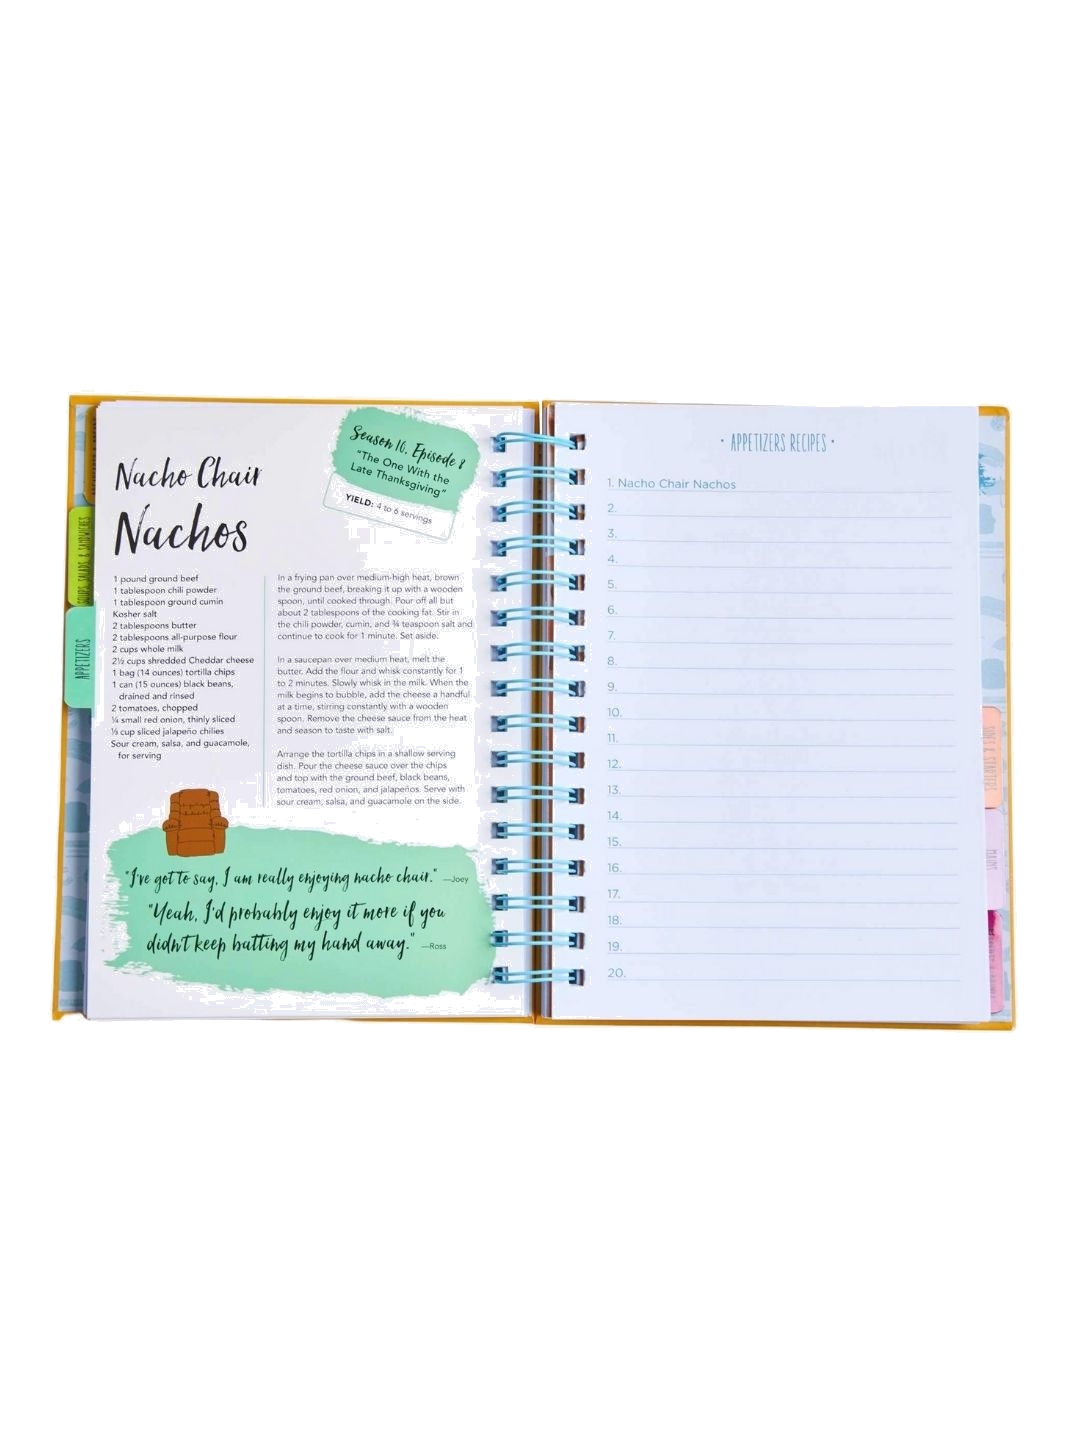 SOUPS, SALADS, & SANDWICHES
APPETIZERS
Nacho Chair
Nachos
Season 10, Episode 8
"The One With the
Late Thanksgiving"
YIELD: 4 to 6 servings
1 pound ground beef
1 tablespoon chili powder
1 tablespoon ground cumin
Kosher salt
2 tablespoons butter
2 tablespoons all-purpose flour
2 cups whole milk
2½ cups shredded Cheddar cheese
1 bag (14 ounces) tortilla chips
1 can (15 ounces) black beans,
drained and rinsed
2 tomatoes, chopped
¼ small red onion, thinly sliced
⅓ cup sliced jalapeño chilies
Sour cream, salsa, and guacamole,
for serving
In a frying pan over medium-high heat, brown
the ground beef, breaking it up with a wooden
spoon, until cooked through. Pour off all but
about 2 tablespoons of the cooking fat. Stir in
the chili powder, cumin, and ¾ teaspoon salt and
continue to cook for 1 minute. Set aside.
In a saucepan over medium heat, melt the
butter. Add the flour and whisk constantly for 1
to 2 minutes. Slowly whisk in the milk. When the
milk begins to bubble, add the cheese a handful
at a time, stirring constantly with a wooden
spoon. Remove the cheese sauce from the heat
and season to taste with salt.
Arrange the tortilla chips in a shallow serving
dish. Pour the cheese sauce over the chips
and top with the ground beef, black beans,
tomatoes, red onion, and jalapeños. Serve with
sour cream, salsa, and guacamole on the side.
"I've got to say, I am really enjoying nacho chair." —Joey
"Yeah, I'd probably enjoy it more if you
didn't keep batting my hand away." —Ross
• APPETIZERS RECIPES •
1. Nacho Chair Nachos
2.
3.
4.
5.
6.
7.
8.
9.
10.
11.
12.
13.
14.
15.
16.
17.
18.
19.
20.
SIDES & STARTERS
MAINS